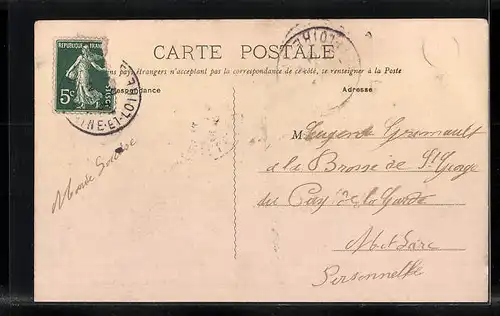 CARTE POSTALE
pays étrangers n'acceptant pas la correspondance de ce côté, se renseigner à la Poste
Correspondance
Adresse
REPUBLIQUE FRANC
5c
POSTES
INE-ET-LOIRE
LOIRE
M Eugene Grimault
à la Brosse de St George
du Puy de la Garde
M et Loire
Personnelle
Marie